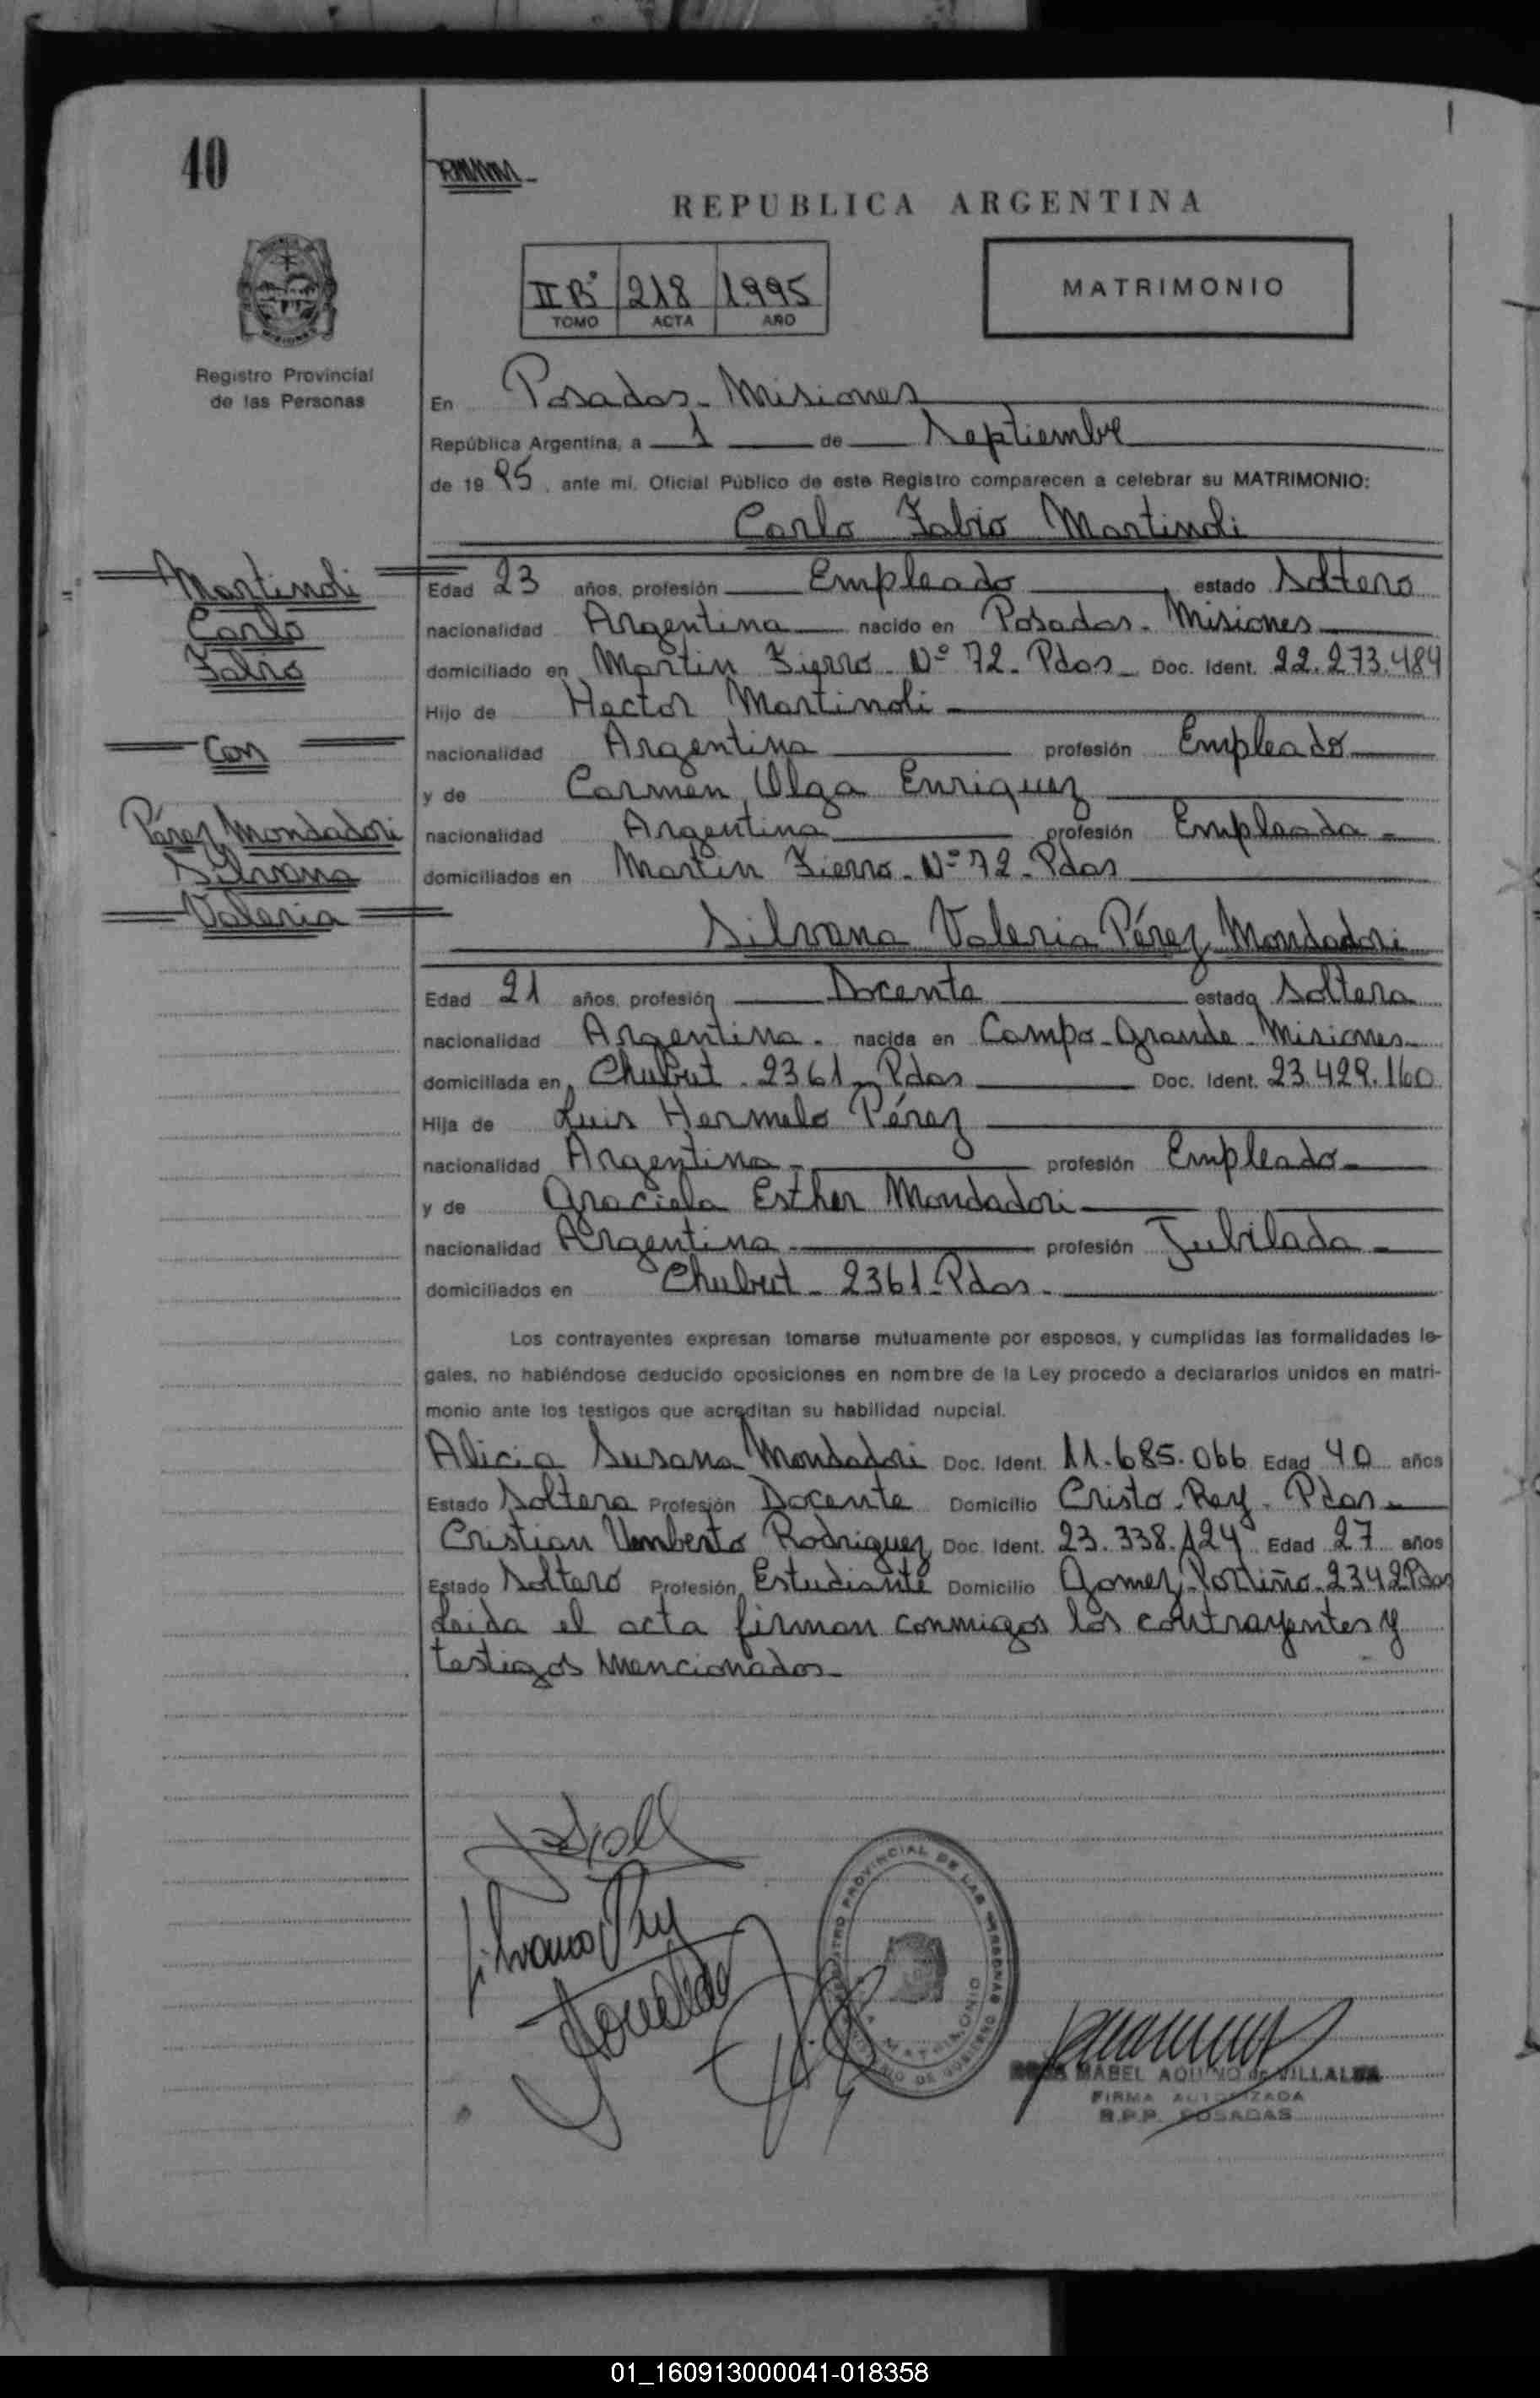 40
REPUBLICA ARGENTINA
IIBº 218 1995
TOMO ACTA AÑO
MATRIMONIO
Registro Provincial
de las Personas
En Posadas - Misiones
República Argentina, a 1 de Septiembre
de 1995, ante mi, Oficial Público de este Registro comparecen a celebrar su MATRIMONIO:
Carlo Fabio Martinoli
Martinoli
Carlo
Fabio
Con
Pérez Mondadori
Silvana
Valeria
Edad 23 años, profesión Empleado estado Soltero
nacionalidad Argentina nacido en Posadas - Misiones
domiciliado en Martin Fierro Nº 72 - Pdas - Doc. Ident. 22.273.484
Hijo de Hector Martinoli
nacionalidad Argentina profesión Empleado
y de Carmen Olga Enriquez
nacionalidad Argentina profesión Empleada -
domiciliados en Martin Fierro - Nº 72 - Pdas
Silvana Valeria Pérez Mondadori
Edad 21 años, profesión Docente estado Soltera
nacionalidad Argentina - nacida en Campo Grande - Misiones
domiciliada en Chubut - 2361 - Pdas Doc. Ident. 23.429.160
Hija de Luis Hermelo Pérez
nacionalidad Argentina - profesión Empleado -
y de Graciela Esther Mondadori -
nacionalidad Argentina - profesión Jubilada -
domiciliados en Chubut - 2361 - Pdas -
Los contrayentes expresan tomarse mutuamente por esposos, y cumplidas las formalidades le-
gales, no habiéndose deducido oposiciones en nombre de la Ley procedo a declararlos unidos en matri-
monio ante los testigos que acreditan su habilidad nupcial.
Alicia Susana Mondadori Doc. Ident. 11.685.066 Edad 40 años
Estado Soltera Profesión Docente Domicilio Cristo Rey - Pdas -
Cristian Umberto Rodriguez Doc. Ident. 23.338.124 Edad 27 años
Estado Soltero Profesión Estudiante Domicilio Gomez Portiño - 2342 Pdas
Leida el acta firman conmigos los contrayentes y
testigos mencionados -
Silvana
REGISTRO PROVINCIAL DE LAS PERSONAS
MATRIMONIO
MABEL AQUINO de VILLALBA
FIRMA AUTORIZADA
R.P.P. POSADAS
01_160913000041-018358